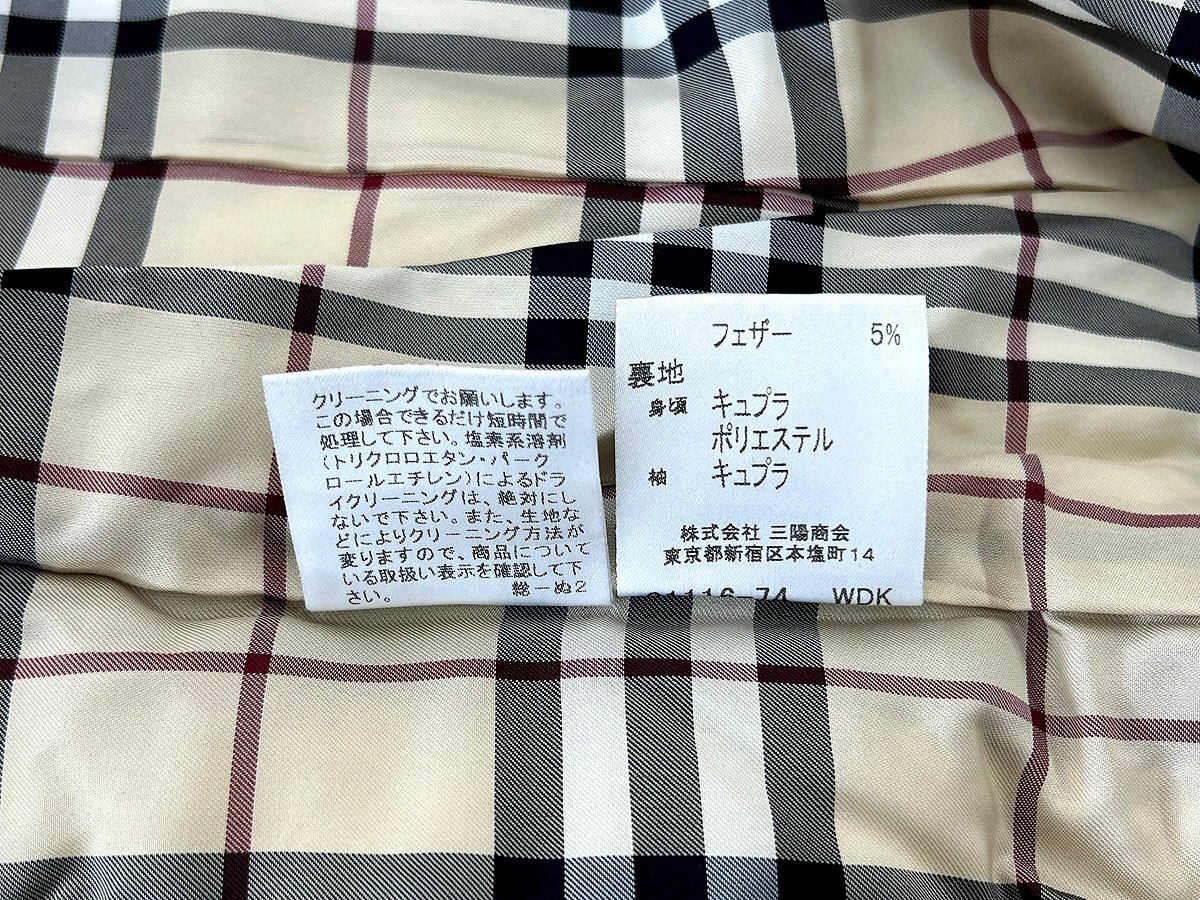 クリーニングでお願いします。
この場合できるだけ短時間で
処理して下さい。塩素系溶剤
(トリクロロエタン・パーク
ロールエチレン)によるドラ
イクリーニングは、絶対にし
ないで下さい。また、生地な
どによりクリーニング方法が
変りますので、商品について
いる取扱い表示を確認して下
さい。 総ーぬ2
フェザー 5%
裏地
身頃 キュプラ
ポリエステル
袖 キュプラ
株式会社 三陽商会
東京都新宿区本塩町14
WDK